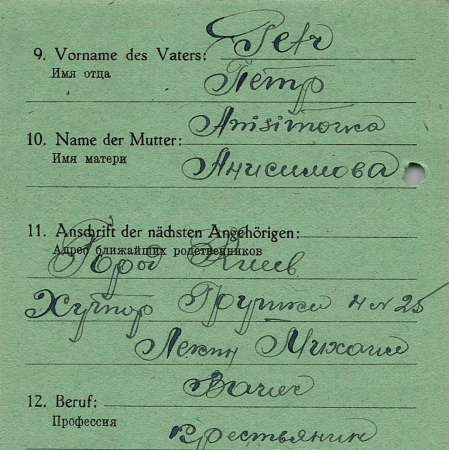 9. Vorname des Vaters: Petr
Имя отца Петр
10. Name der Mutter: Anisimowa
Имя матери Анисимова
11. Anschrift der nächsten Angehörigen:
Адрес ближайших родственников
Киев
Хутор Грушки 25
Лекин Михаил
12. Beruf:
Профессия крестьянин